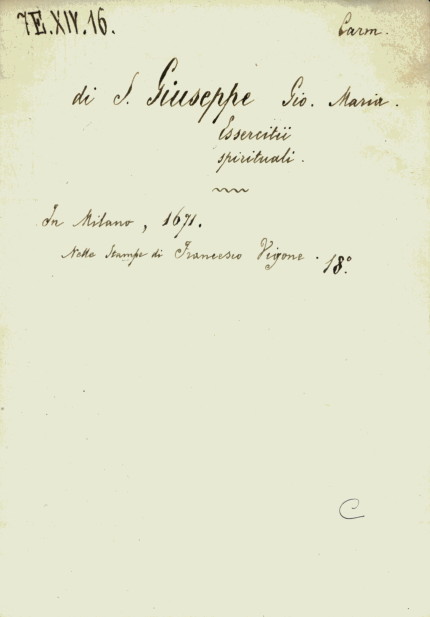 7E.XIV.16. Carm.
di S. Giuseppe Gio. Maria.
Essercitii
spirituali.
In Milano, 1671.
Nelle Stampe di Francesco Vigone. 18°.
C